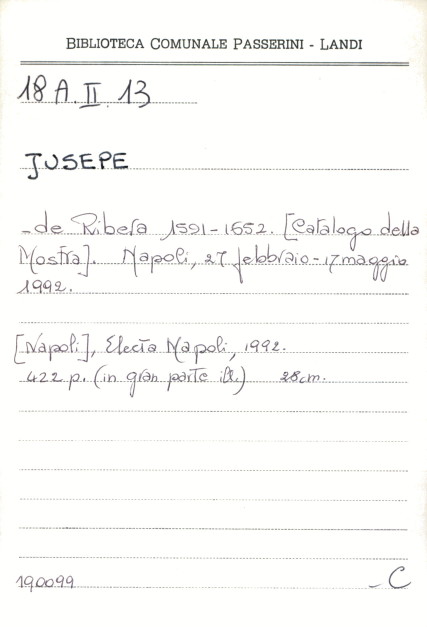 BIBLIOTECA COMUNALE PASSERINI - LANDI
18 A. II. 13
JUSEPE
- de Ribera 1591-1652. [Catalogo della
Mostra]. Napoli, 27 febbraio - 17 maggio
1992.
[Napoli], Electa Napoli, 1992.
422 p. (in gran parte ill.) 28 cm.
190099
- C